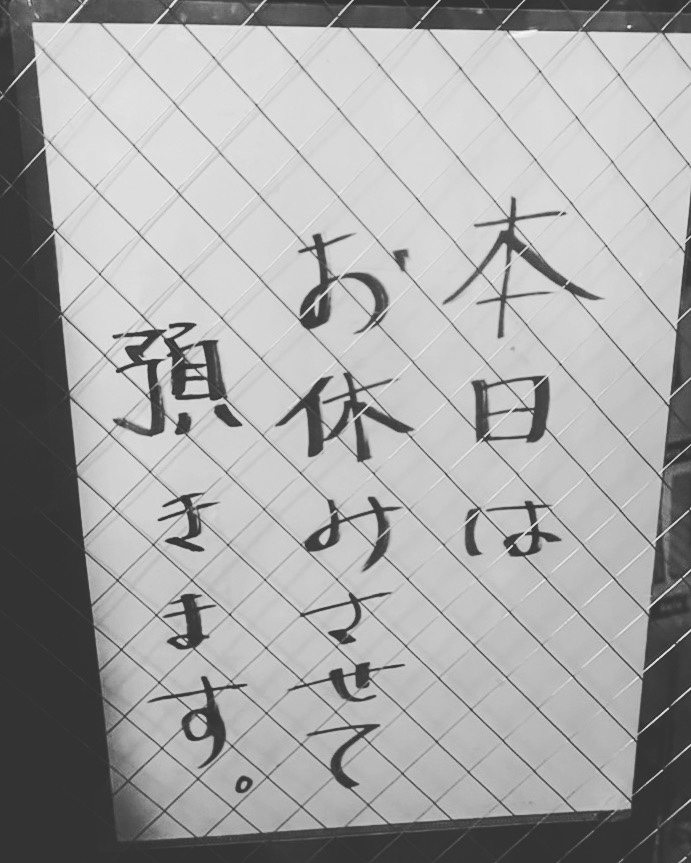 本日は
お休みさせて
預きます。